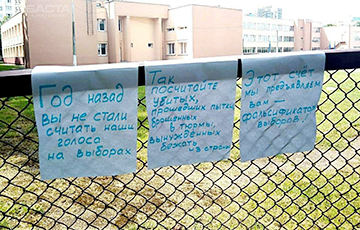 БАСТА
Год назад
вы не стали
считать наши
голоса
на выборах
Так
посчитайте
убитых,
прошедших пытки,
брошенных
в тюрьмы,
вынужденных
бежать
из страны
Этот счёт
мы предъявляем
вам —
фальсификаторы
выборов!